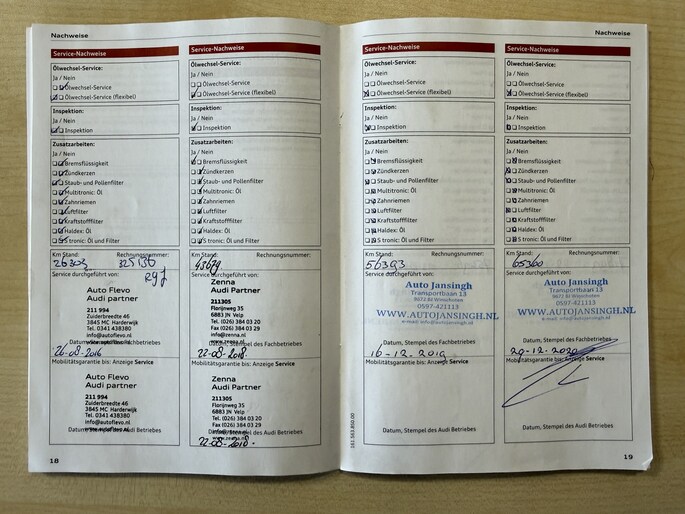 Nachweise
Service-Nachweise
Ölwechsel-Service:
Ja / Nein
Ölwechsel-Service
Ölwechsel-Service (flexibel)
Inspektion:
Ja / Nein
Inspektion
Zusatzarbeiten:
Ja / Nein
Bremsflüssigkeit
Zündkerzen
Staub- und Pollenfilter
Multitronic: Öl
Zahnriemen
Luftfilter
Kraftstofffilter
Haldex: Öl
S tronic: Öl und Filter
Km Stand: Rechnungsnummer:
325136
Service durchgeführt von:
Auto Flevo
Audi partner
211 994
Zuiderbreedte 46
3845 MC Harderwijk
Tel. 0341 438380
info@autoflevo.nl
Datum, Stempel des Fachbetriebes
26-08-2016
Mobilitätsgarantie bis: Anzeige Service
Auto Flevo
Audi partner
211 994
Zuiderbreedte 46
3845 MC Harderwijk
Tel. 0341 438380
info@autoflevo.nl
Datum, Stempel des Audi Betriebes
18
Service-Nachweise
Ölwechsel-Service:
Ja / Nein
Ölwechsel-Service
Ölwechsel-Service (flexibel)
Inspektion:
Ja / Nein
Inspektion
Zusatzarbeiten:
Ja / Nein
Bremsflüssigkeit
Zündkerzen
Staub- und Pollenfilter
Multitronic: Öl
Zahnriemen
Luftfilter
Kraftstofffilter
Haldex: Öl
S tronic: Öl und Filter
Km Stand: Rechnungsnummer:
43679
Service durchgeführt von:
Zenna
Audi Partner
211305
Florijnweg 35
6883 JN Velp
Tel. (026) 384 03 20
Fax (026) 384 03 29
info@zenna.nl
www.zenna.nl
Datum, Stempel des Fachbetriebes
22-08-2018.
Mobilitätsgarantie bis: Anzeige Service
Zenna
Audi Partner
211305
Florijnweg 35
6883 JN Velp
Tel. (026) 384 03 20
Fax (026) 384 03 29
info@zenna.nl
www.zenna.nl
Datum, Stempel des Audi Betriebes
22-08-2018.
Nachweise
Service-Nachweise
Ölwechsel-Service:
Ja / Nein
Ölwechsel-Service
Ölwechsel-Service (flexibel)
Inspektion:
Ja / Nein
Inspektion
Zusatzarbeiten:
Ja / Nein
Bremsflüssigkeit
Zündkerzen
Staub- und Pollenfilter
Multitronic: Öl
Zahnriemen
Luftfilter
Kraftstofffilter
Haldex: Öl
S tronic: Öl und Filter
Km Stand: Rechnungsnummer:
56393
Service durchgeführt von:
Auto Jansingh
Transportbaan 13
9672 BJ Winschoten
0597-421113
WWW.AUTOJANSINGH.NL
e-mail: info@autojansingh.nl
Datum, Stempel des Fachbetriebes
16-12-2019
Mobilitätsgarantie bis: Anzeige Service
Datum, Stempel des Audi Betriebes
161.563.850.00
Service-Nachweise
Ölwechsel-Service:
Ja / Nein
Ölwechsel-Service
Ölwechsel-Service (flexibel)
Inspektion:
Ja / Nein
Inspektion
Zusatzarbeiten:
Ja / Nein
Bremsflüssigkeit
Zündkerzen
Staub- und Pollenfilter
Multitronic: Öl
Zahnriemen
Luftfilter
Kraftstofffilter
Haldex: Öl
S tronic: Öl und Filter
Km Stand: Rechnungsnummer:
65360
Service durchgeführt von:
Auto Jansingh
Transportbaan 13
9672 BJ Winschoten
0597-421113
WWW.AUTOJANSINGH.NL
e-mail: info@autojansingh.nl
Datum, Stempel des Fachbetriebes
29-12-2020
Mobilitätsgarantie bis: Anzeige Service
Datum, Stempel des Audi Betriebes
19